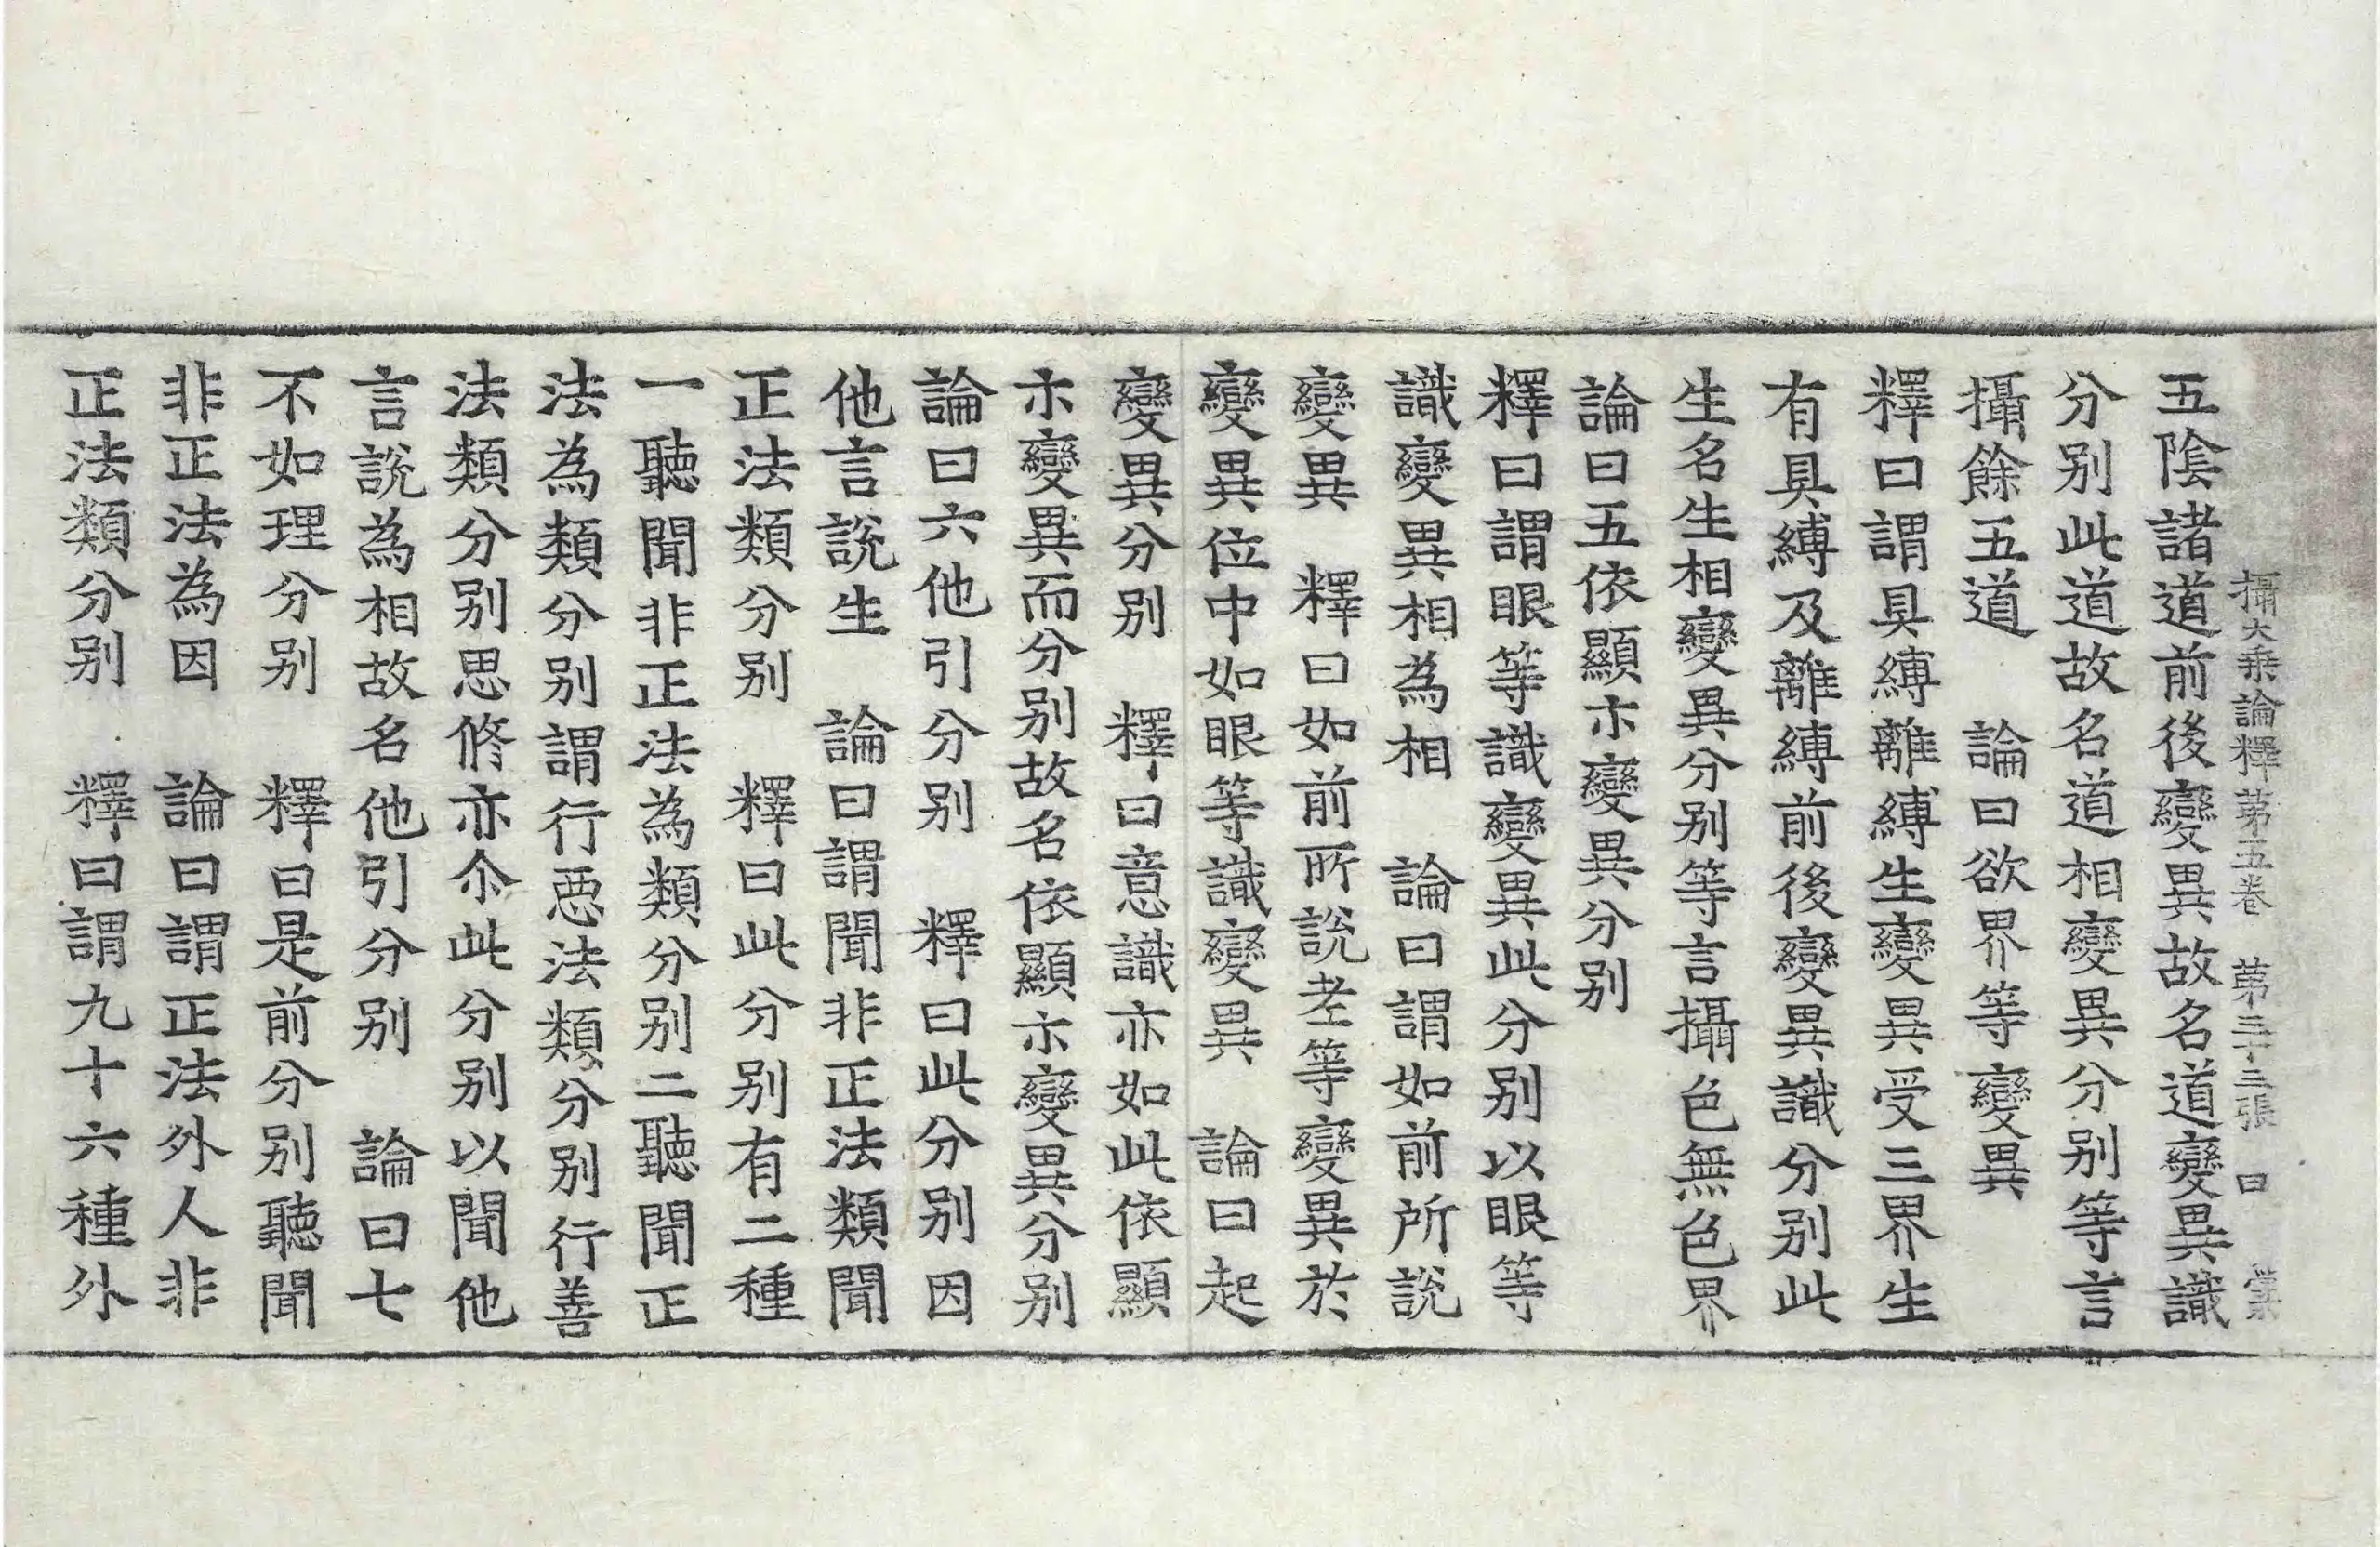 攝大乗論釋第五卷　第三十三張　曰
五陰諸道前後變異故名道變異識
分別此道故名道相變異分別等言
攝餘五道　論曰欲界等變異
釋曰謂具縛離縛生變異受三界生
有具縛及離縛前後變異識分別此
生名生相變異分別等言攝色無色界
論曰五依顯示變異分別
釋曰謂眼等識變異此分別以眼等
識變異相為相　論曰謂如前所說
變異　釋曰如前所說老等變異於
變異位中如眼等識變異　論曰起
變異分別　釋曰意識亦如此依顯
示變異而分別故名依顯示變異分別
論曰六他引分別　釋曰此分別因
他言說生　論曰謂聞非正法類聞
正法類分別　釋曰此分別有二種
一聽聞非正法為類分別二聽聞正
法為類分別謂行惡法類分別行善
法類分別思脩亦尒此分別以聞他
言說為相故名他引分別　論曰七
不如理分別　釋曰是前分別聽聞
非正法為因　論曰謂正法外人非
正法類分別　釋曰謂九十六種外